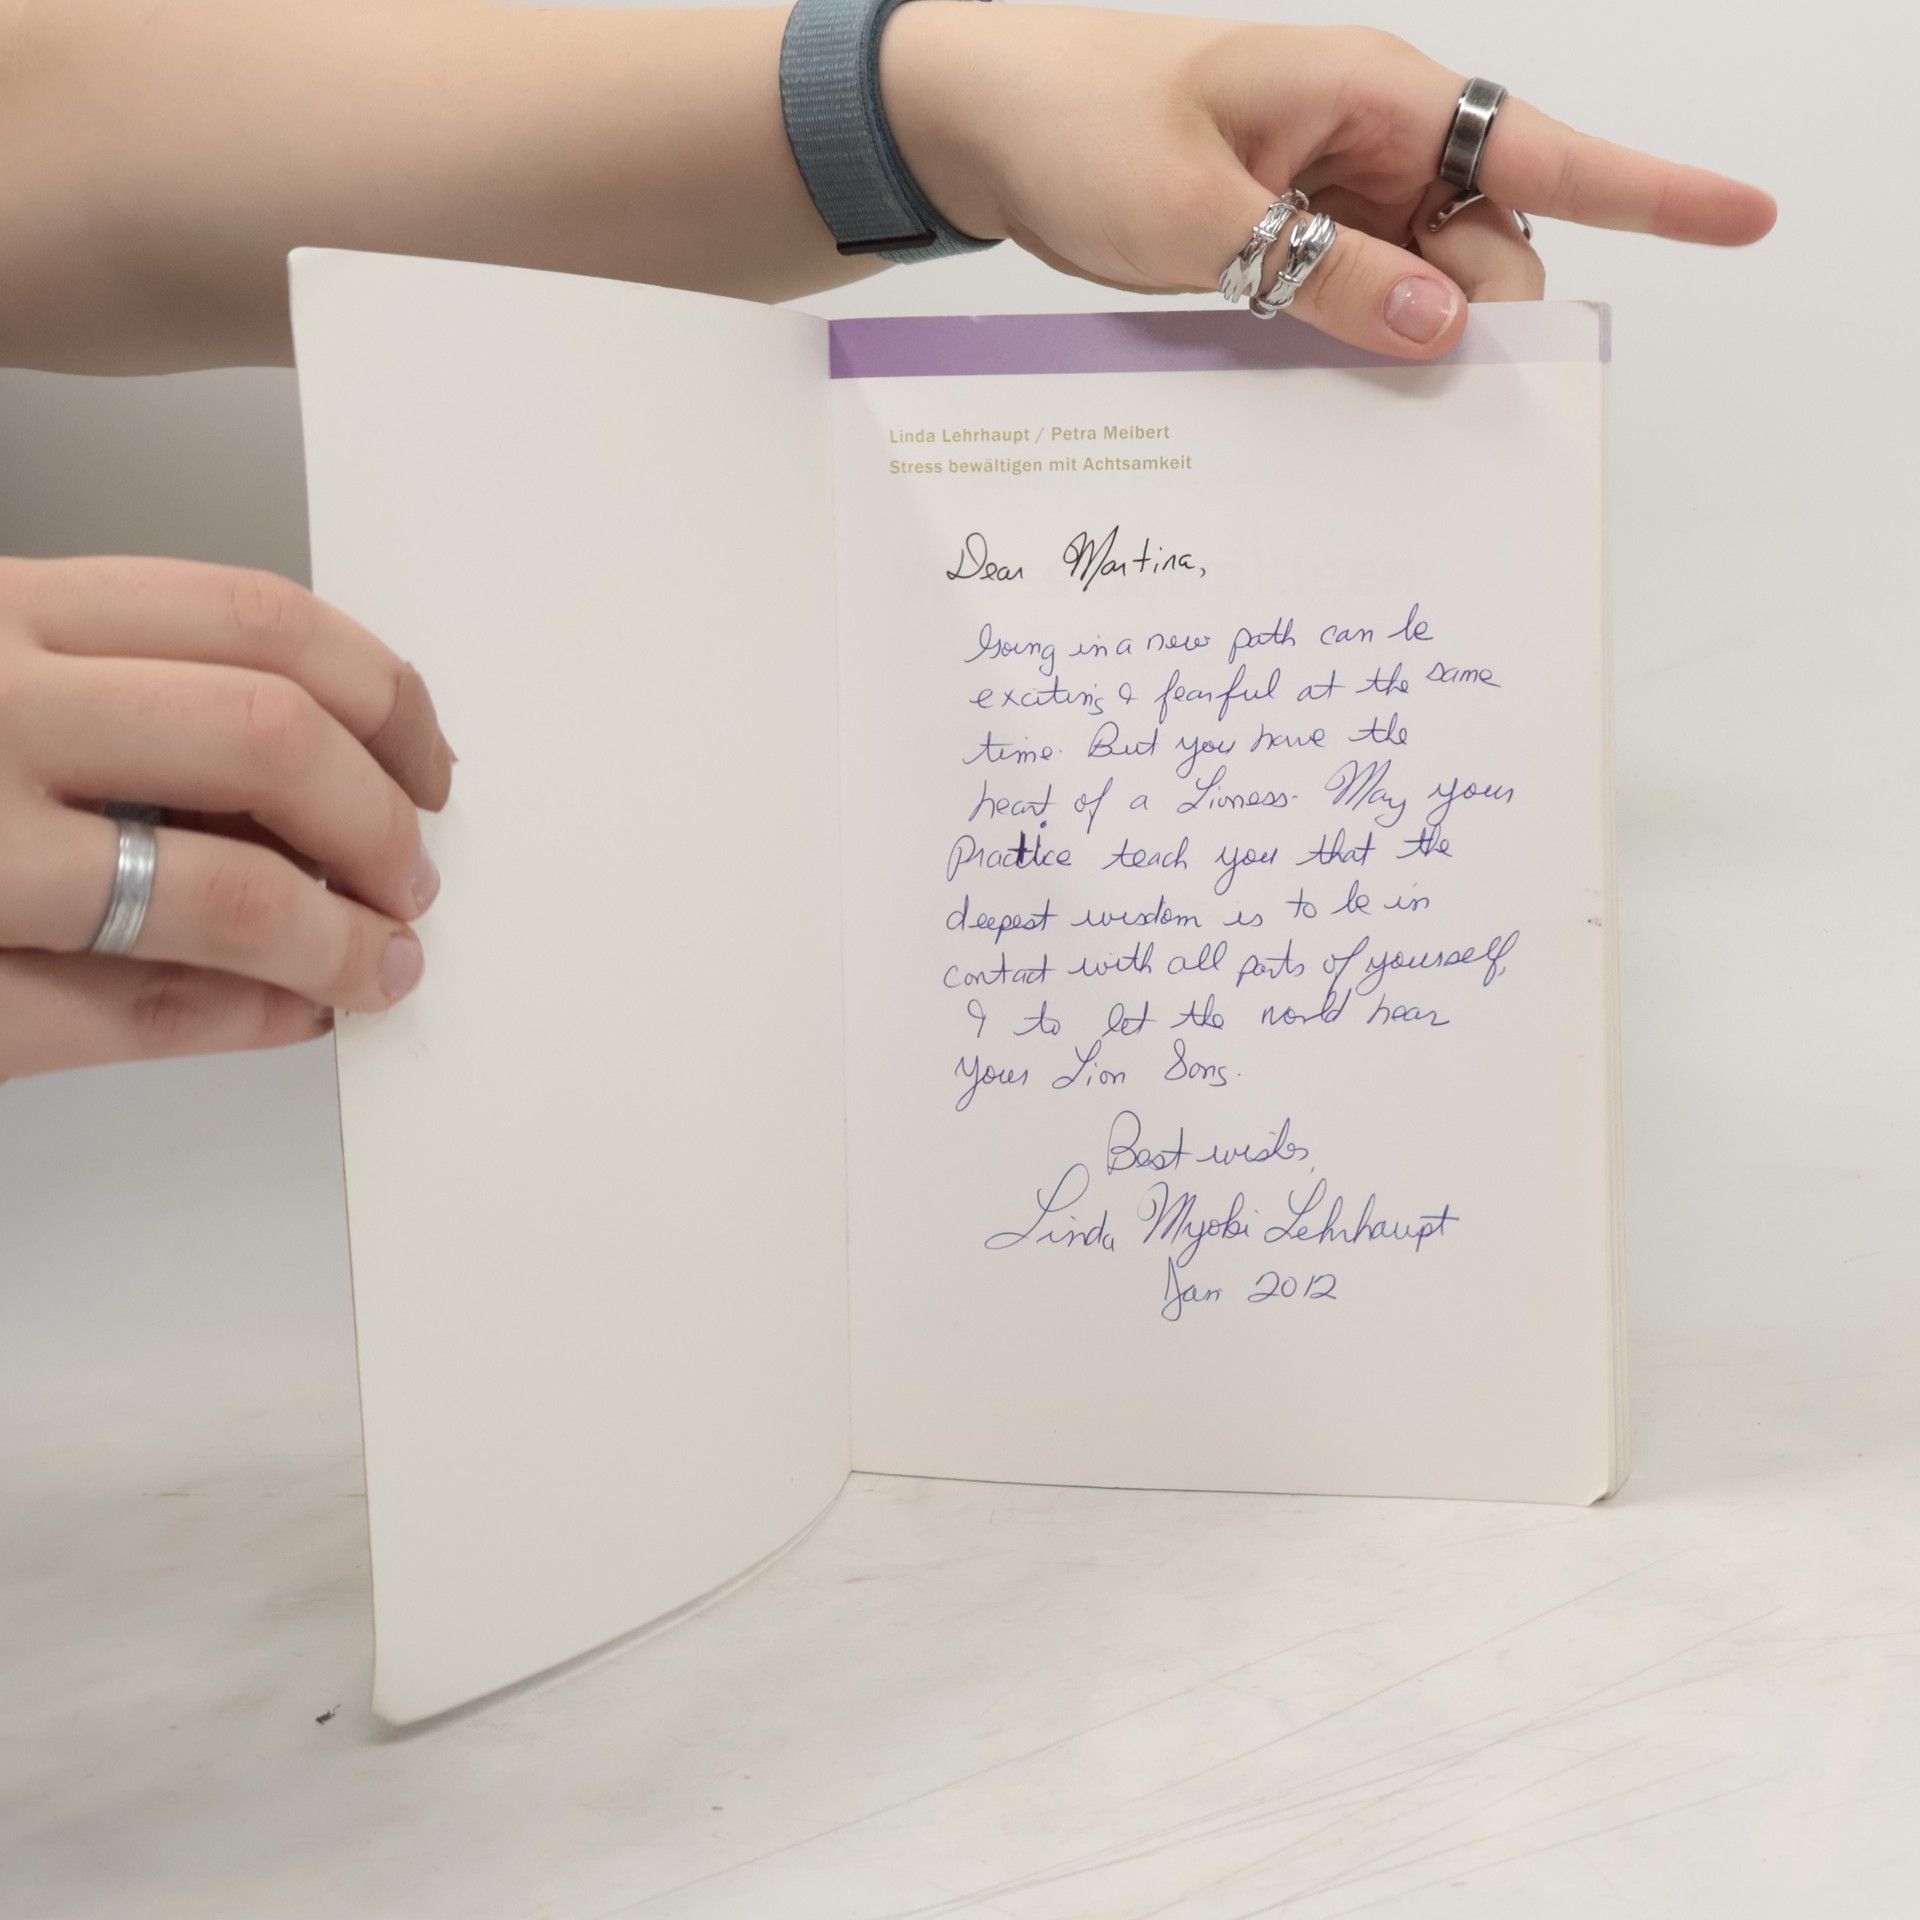 Linda Lehrhaupt / Petra Meibert
Stress bewältigen mit Achtsamkeit
Dear Martina,
Going in a new path can be
exciting & fearful at the same
time. But you have the
heart of a Lioness. May your
Practice teach you that the
deepest wisdom is to be in
contact with all parts of yourself,
& to let the world hear
your Lion Song.
Best wishes,
Linda Myobi Lehrhaupt
Jan 2012